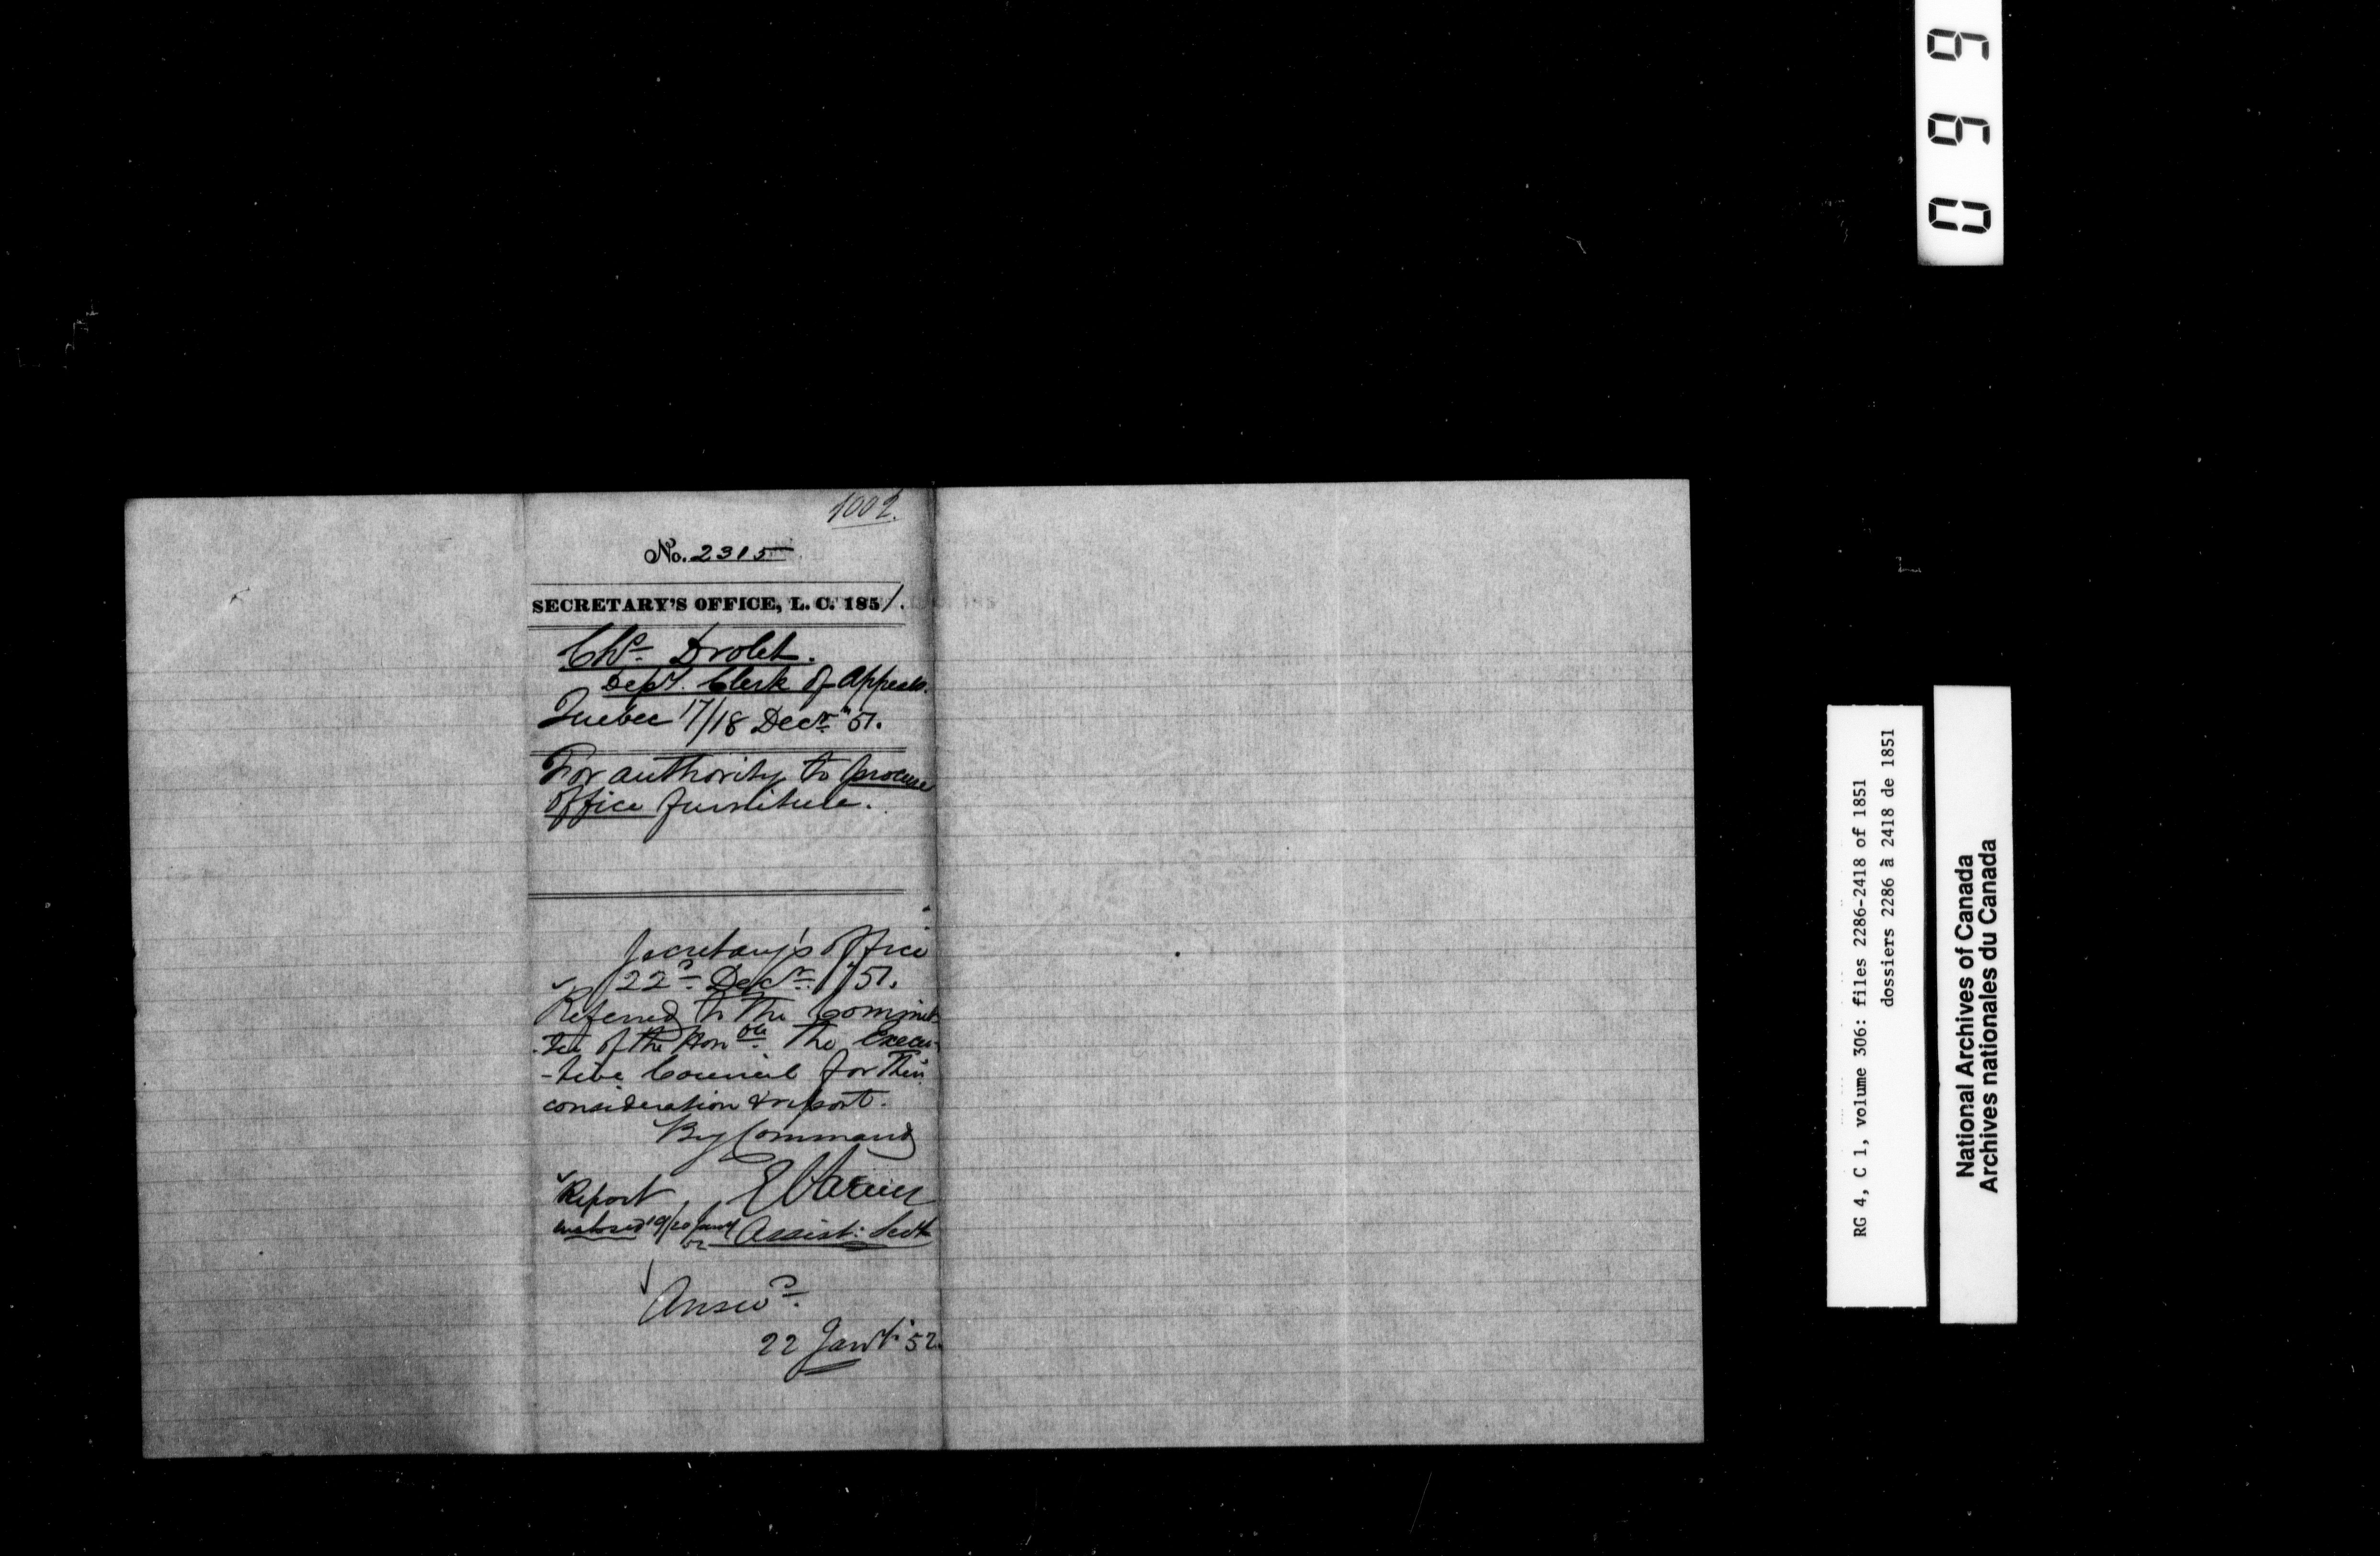 1002.
No. 2315
SECRETARY'S OFFICE, L. C. 1851.
Chs. Drolet.
Depy. Clerk of Appeals.
Quebec 17/18 Decr. "51.
For authority to procure
office furniture.
Secretary's Office
22d. Decr. 1"51.
Referred to the Commit-
-tee of the Honble. The Execu-
-tive Council for their
consideration & report.
By Command
E Parent
Assist: Secty
Report
enclosed 19/20 Jany
52
Answd.
22 Jany "52.
0999
RG 4, C 1, volume 306: files 2286-2418 of 1851
dossiers 2286 à 2418 de 1851
National Archives of Canada
Archives nationales du Canada